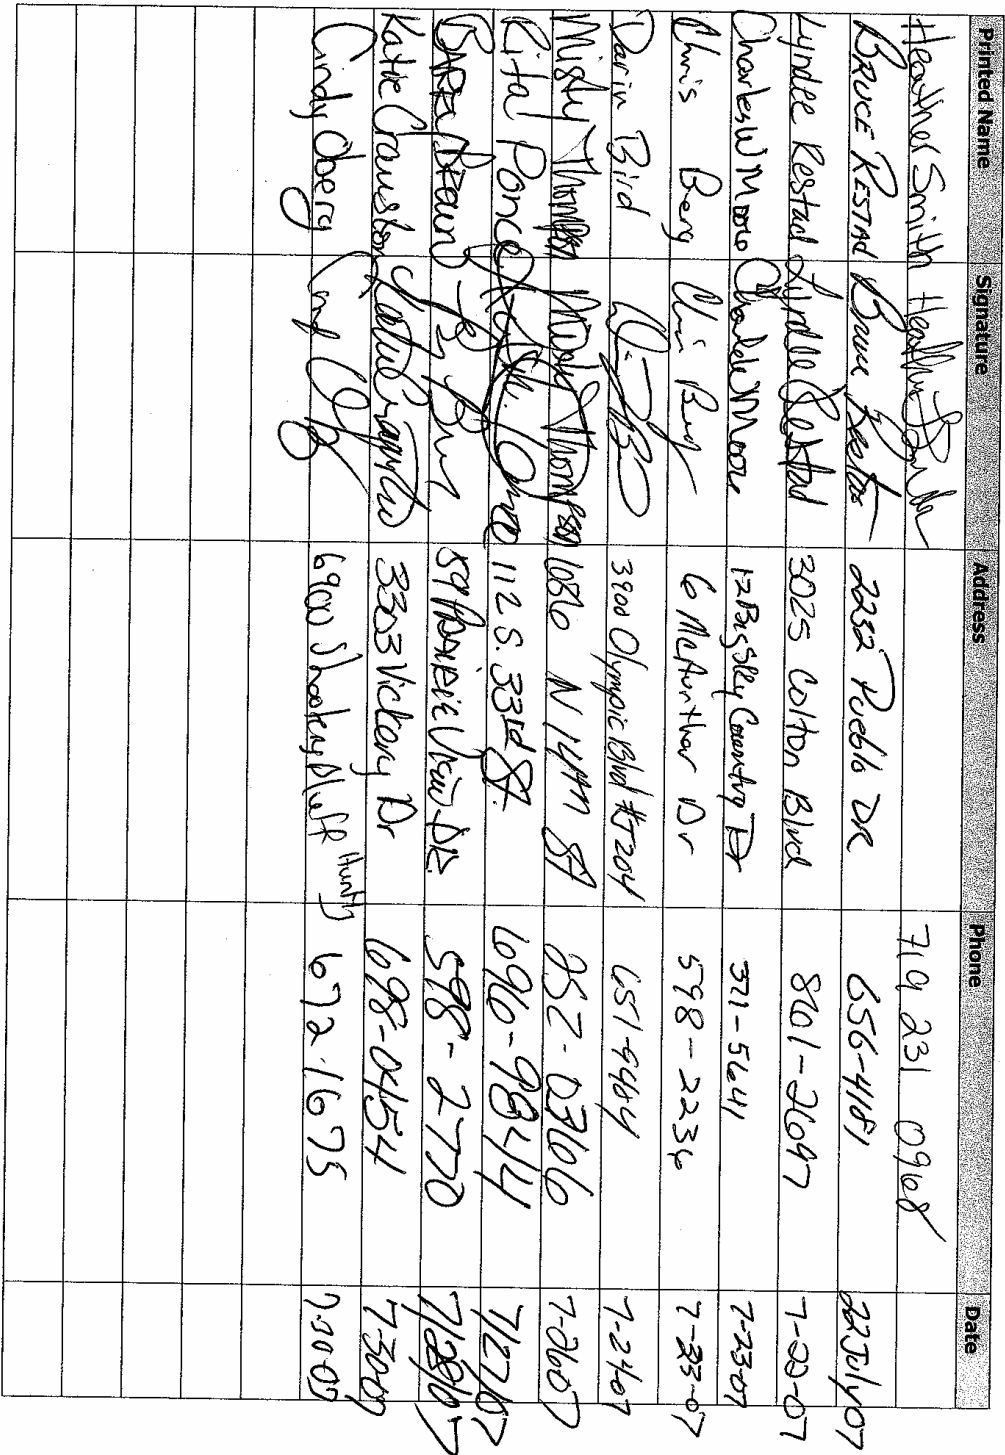 Printed Name Signature Address Phone Date
Heather Smith Heather Smith 719 231 0968
BRUCE RESTAD Bruce Restad 2232 Pueblo DR 656-4181 22July07
Lyndee Restad Lyndee Restad 3025 Colton Blvd 861-2697 7-22-07
Charles W Moore Charles W Moore 12 Big Sky Country Dr 371-5641 7-23-07
Chris Berg Chris Berg 6 McArthur Dr 598-2236 7-23-07
Darin Bird 3900 Olympic Blvd #J204 651-9484 7-24-07
Misty Thompson Misty Thompson 1086 N 14th St 252-0366 7-26-07
Rita Ponce Rita Ponce 112 S. 33rd St. 696-9844 7/27/07
Brown 59 Prairie View DR. 598-2770 7/28/07
Katie Cranston Katie Cranston 3303 Vickery Dr 698-0454 7-30-07
Cindy Oberg 6900 Bluff Huntly 672-1675